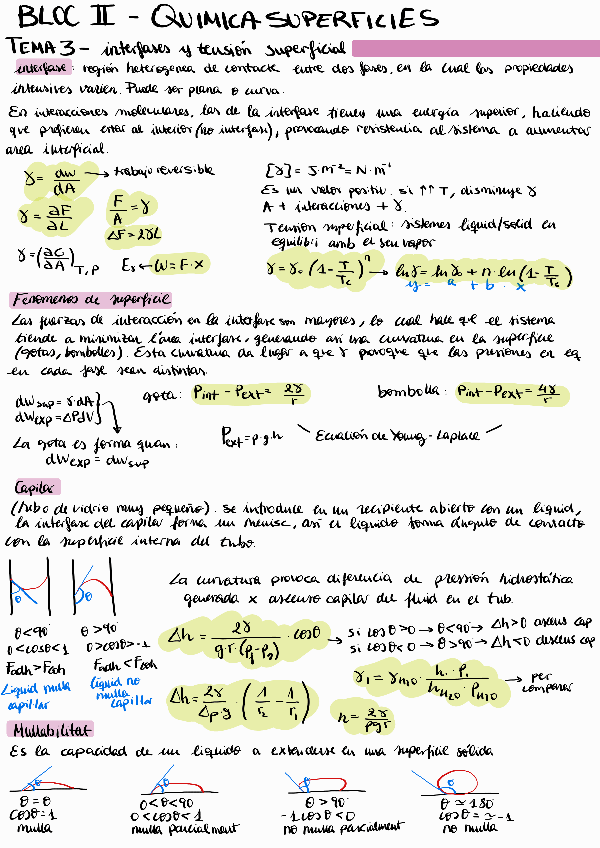 BLOC II - QUIMICA SUPERFICIES
TEMA 3 - interfases y tensión superficial
interfase: región heterogenea de contacte entre dos fases, en la cual las propiedades
intensives varien. Puede ser plana o curva.
En interacciones moleculares, las de la interfase tienen una energía superior, haciendo
que prefieran estar al interior (no interfase), provocando resistencia al sistema a aumentar
area interficial.
γ = dw/dA → trabajo reversible
[γ] = J·m⁻² = N·m⁻¹
Es un valor positiu. si ↑↑ T, disminuye γ
A + interacciones + γ.
γ = ∂F/∂L F/A = γ
ΔF = 2γL
Tensión superficial: sistemes liquid/solid en
equilibri amb el seu vapor
γ = (∂G/∂A)T,P Es ← W = F·x
γ = γ₀ (1 - T/Tc)ⁿ → ln γ = ln γ₀ + n · ln (1 - T/Tc)
y = a + b · x
Fenomenos de superficie
Las fuerzas de interacción en la interfase son mayores, lo cual hace que el sistema
tiende a minimizar l'àrea interfase, generando asi una curvatura en la superficie
(gotas, bombolles). Esta curvatura da lugar a que γ provoque que las presiones en eq
en cada fase sean distintas.
dWsup = γ·dA
dWexp = ΔPdV
gota: Pint - Pext = 2γ/r
bombolla: Pint - Pext = 4γ/r
La gota es forma quan:
dWexp = dWsup
Pext = ρ·g·h
Ecuación de Young-Laplace
Capilar
(tubo de vidrio muy pequeño). Se introduce en un recipiente abierto con un liquid,
la interfase del capilar forma un menisc, así el liquido forma ángulo de contacto
con la superficie interna del tubo.
θ θ
La curvatura provoca diferencia de presión hidrostática
generada x ascenso capilar del fluid en el tub.
θ<90° θ>90°
0<cosθ<1 0>cosθ>-1
Fadh>Fcoh Fadh<Fcoh
Liquid mulla
capillar
liquid no
mulla
capillar
Δh = 2γ / g·r·(ρ₁-ρ₂) · cosθ → si cosθ>0 → θ<90° → Δh>0 ascens cap
si cosθ<0 → θ>90° → Δh<0 descens cap
γ₁ = γH₂O · h·ρ₁ / hH₂O·ρH₂O → per
comparar
Δh = 2γ/Δρ·g · (1/r₂ - 1/r₁) h = 2γ/ρgr
Mullabilitat
Es la capacidad de un liquido a extenderse en una superficie sólida
θ θ θ θ
θ = 0
cosθ=1
mulla
0<θ<90
0<cosθ<1
mulla parcialment
θ>90°
-1 cosθ<0
no mulla parcialment
θ ≃ 180°
cosθ = ≃ -1
no mulla